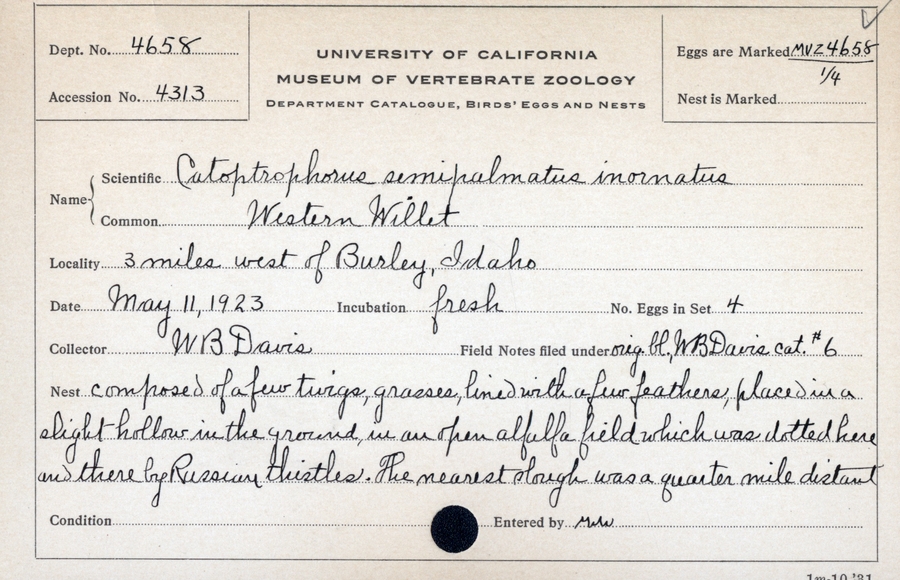 Dept. No. 4658
Accession No. 4313
UNIVERSITY OF CALIFORNIA
MUSEUM OF VERTEBRATE ZOOLOGY
DEPARTMENT CATALOGUE, BIRDS' EGGS AND NESTS
Eggs are Marked MVZ4658
1/4
Nest is Marked
Name
Scientific Catoptrophorus semipalmatus inornatus
Common Western Willet
Locality 3 miles west of Burley, Idaho
Date May 11, 1923 Incubation fresh No. Eggs in Set 4
Collector W B Davis Field Notes filed under orig. bl., WB Davis cat. #6
Nest composed of a few twigs, grasses, lined with a few feathers, placed in a
slight hollow in the ground, in an open alfalfa field which was dotted here
and there by Russian thistles. The nearest slough was a quarter mile distant
Condition Entered by
1m-10,'31